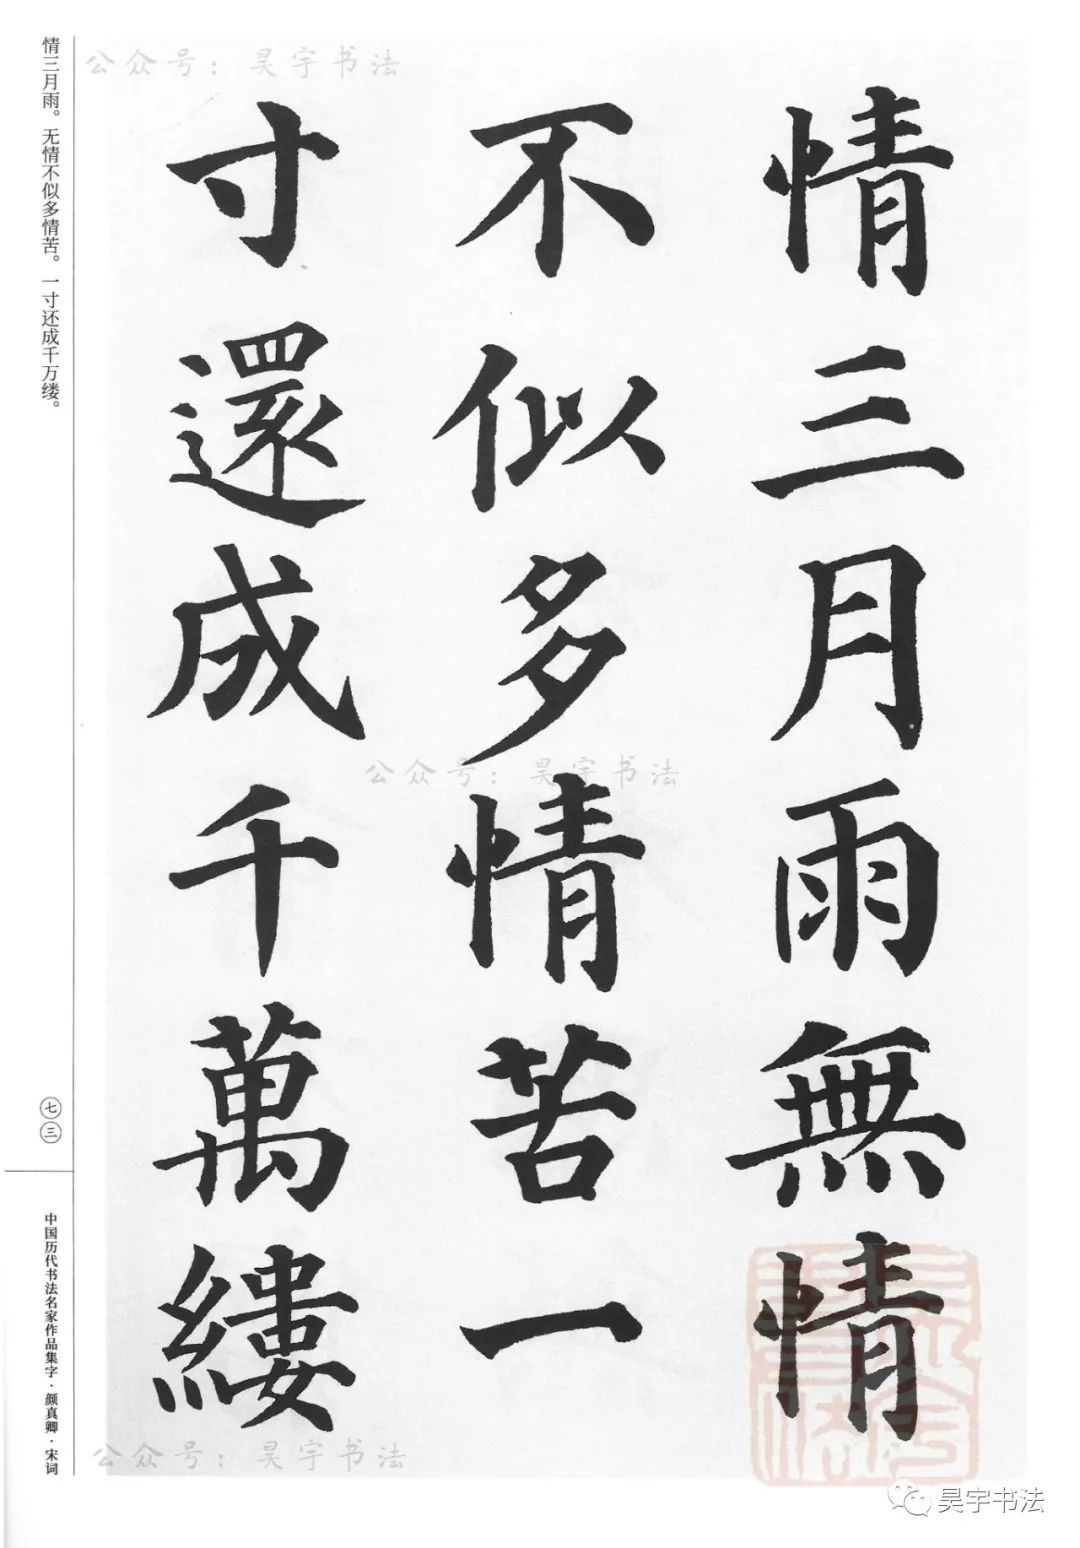 情三月雨無情
不似多情苦一
寸還成千萬縷
情三月雨。无情不似多情苦。一寸还成千万缕。
七三
中国历代书法名家作品集字·颜真卿·宋词
公众号：昊宇书法
公众号：昊宇书法
公众号：昊宇书法
昊宇书法
昊宇书法